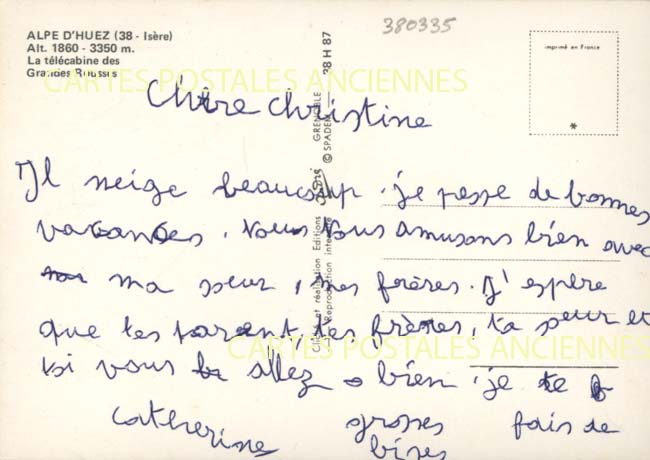 ALPE D'HUEZ (38 - Isère)
Alt. 1860 - 3350 m.
La télécabine des
Grandes Rousses
380335
imprimé en France
*
CARTES POSTALES ANCIENNES
GRENOBLE 38 H 87
© SPADEM
réalisation Editions
Reproduction
Chère Christine
Il neige beaucoup. je passe de bonnes
vacances. Nous nous amusons bien avec
ma seur, mes frères. J'espère
que tes parent, tes frères, ta seur et
toi vous allez bien. je te
fais de
grosses
bises
Catherine
CARTES POSTALES ANCIENNES